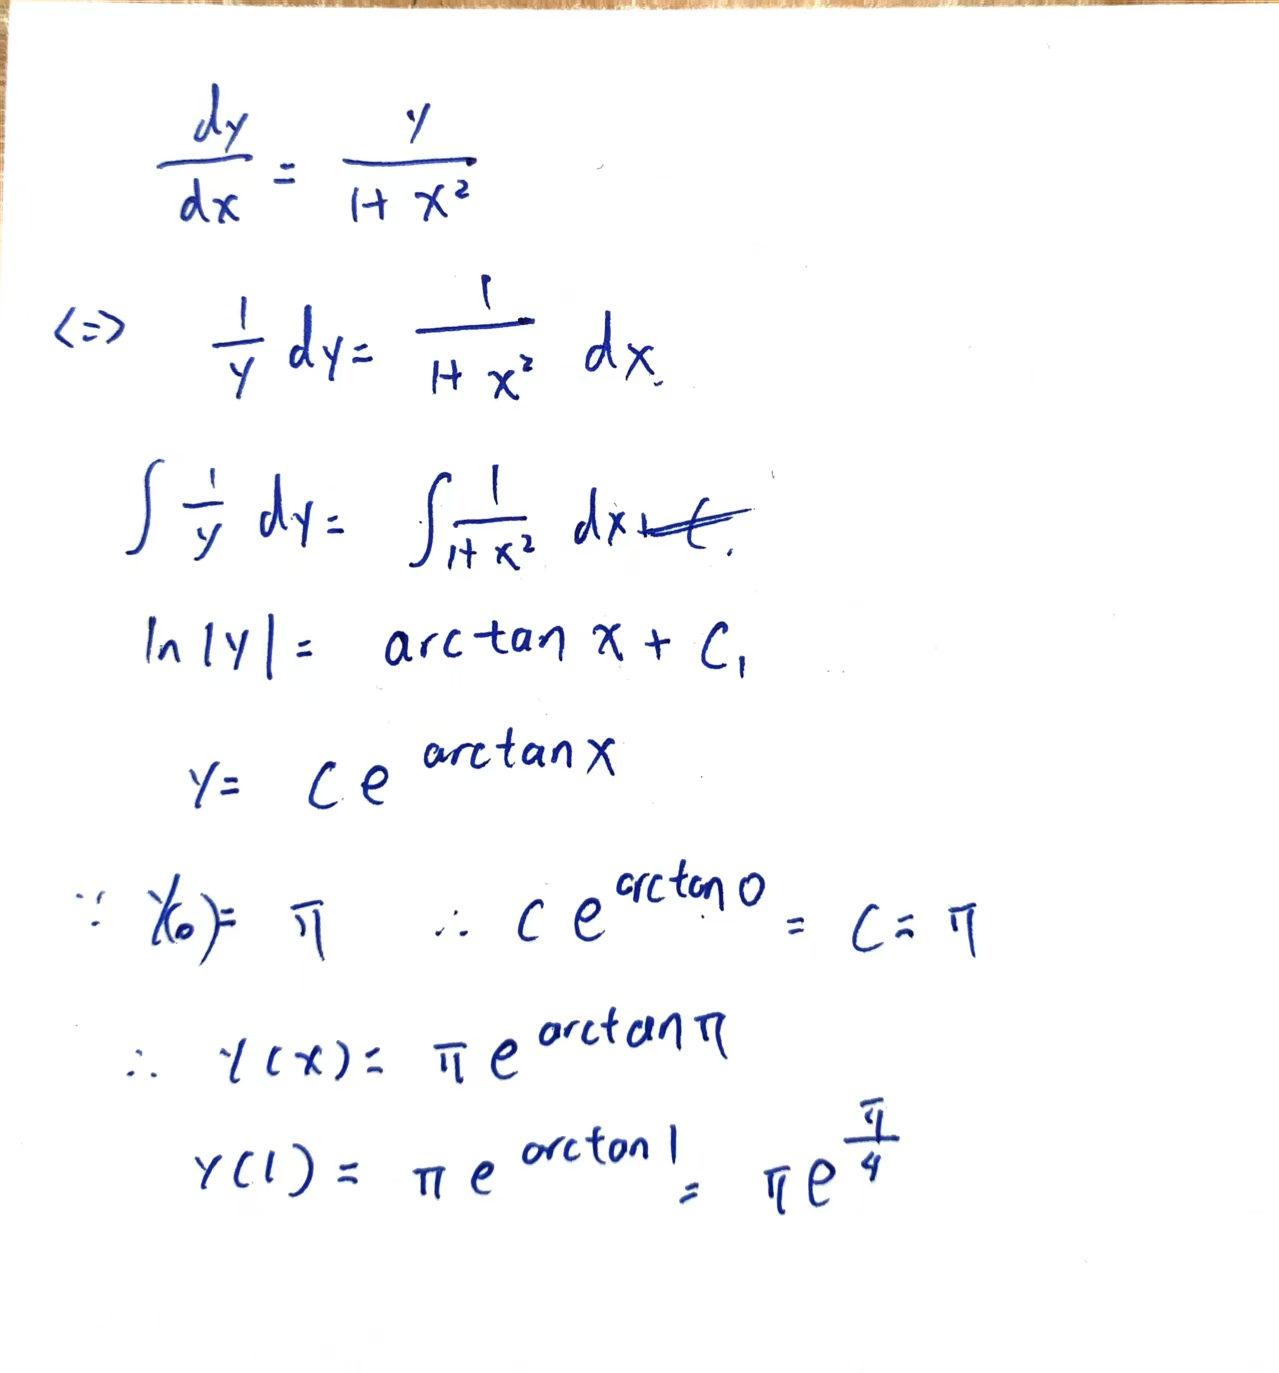 dy/dx = y/(1+x²)
<=> 1/y dy = 1/(1+x²) dx.
∫ 1/y dy = ∫ 1/(1+x²) dx
ln|y| = arctan x + C₁
y = C e^(arctan x)
∵ y(0) = π ∴ C e^(arctan 0) = C = π
∴ y(x) = π e^(arctan π)
y(1) = π e^(arctan 1) = π e^(π/4)